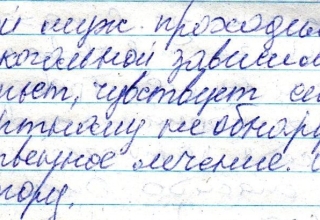 й муж проходил
когольной зависим
пьет, чувствует се
ртному не обнару
твенное лечение.
году.